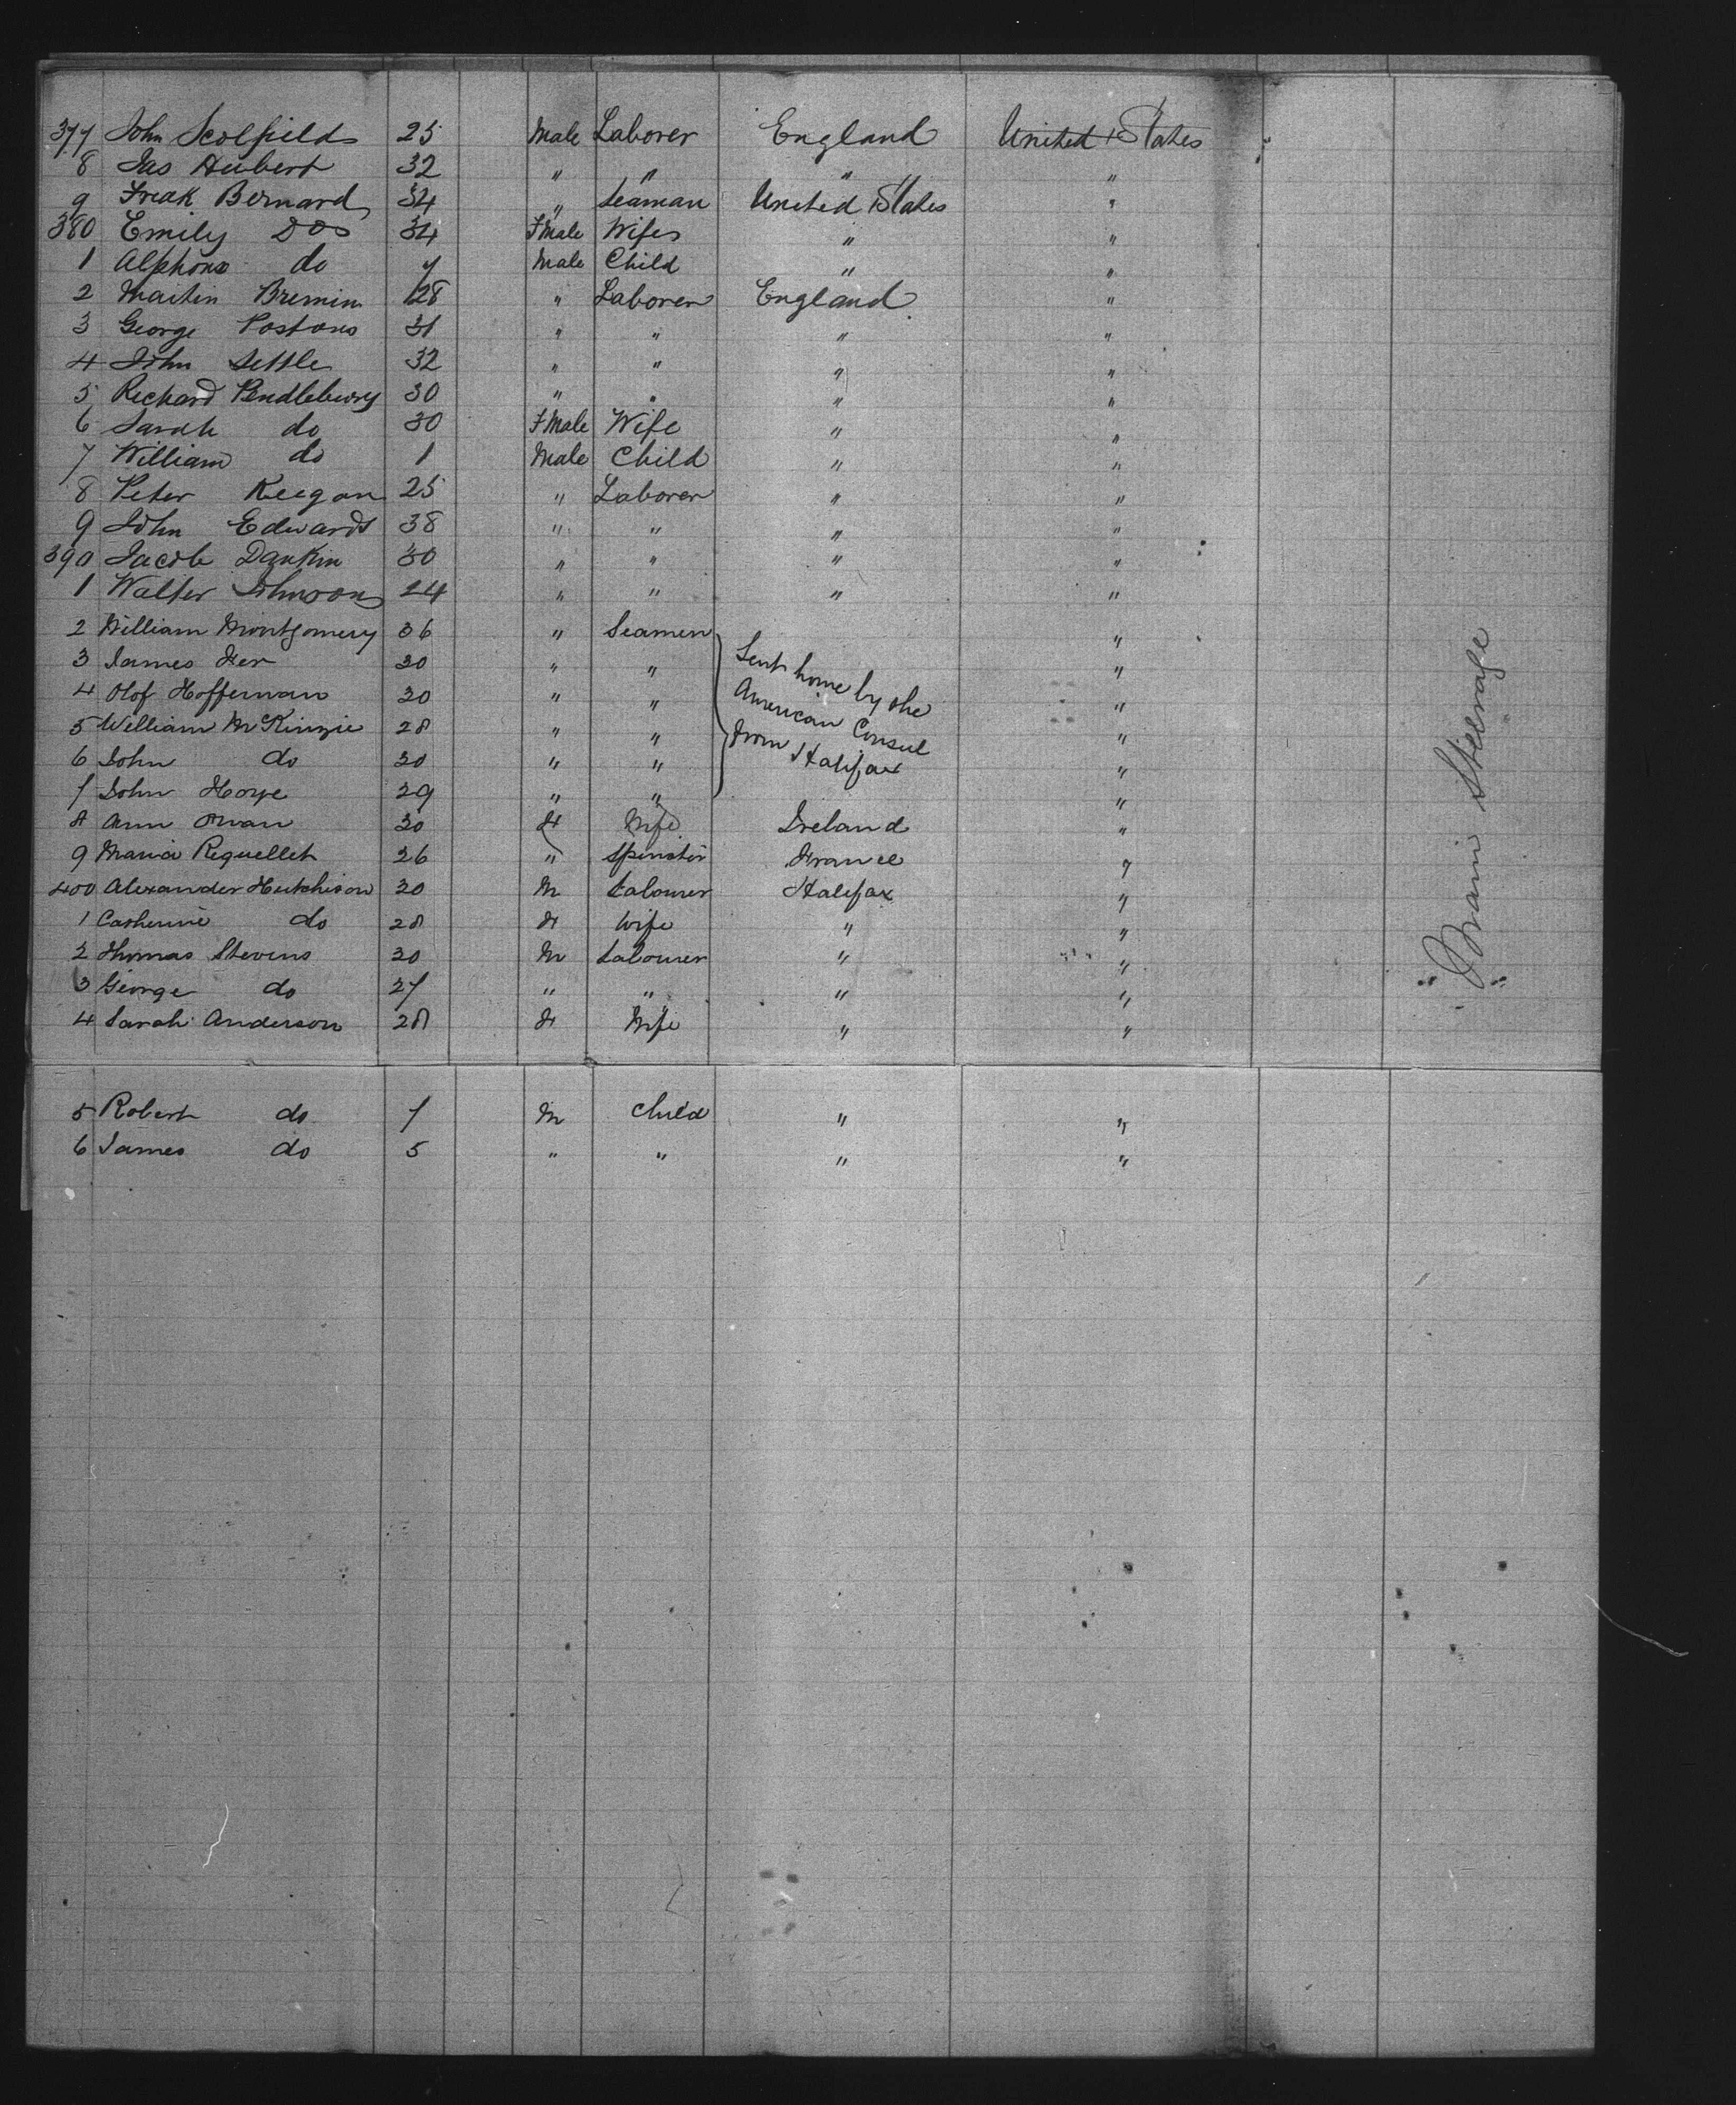 377 John Scolfield 25 Male Laborer England United States
8 Jas Hubert 32 " " " "
9 Freak Bernard 34 " Seaman United States "
380 Emily Do 34 Fmale Wife " "
1 Alphons do 7 Male Child " "
2 Martin Bremin 28 " Laborer England "
3 George Postons 31 " " " "
4 John Settle 32 " " " "
5 Richard Pendlebury 30 " " " "
6 Sarah do 30 Fmale Wife " "
7 William do 1 Male Child " "
8 Peter Keegan 25 " Laborer " "
9 John Edwards 38 " " " "
390 Jacob Dankin 30 " " " "
1 Walter Johnson 24 " " " "
2 William Montgomery 36 " Seamen "
3 James 30 " " Sent home by the "
4 Olof Heffernan 30 " " American Consul "
5 William McKinzie 28 " " from Halifax "
6 John do 30 " " "
7 John Hoye 29 " " "
8 Ann 30 F Wife Ireland "
9 Maria Requellet 26 " Spinster France "
400 Alexander Hutchison 30 M Labourer Halifax "
1 Catherine do 28 F Wife " "
2 Thomas Stevens 30 M Labourer " "
3 George do 27 " " " "
4 Sarah Anderson 28 F Wife " "
5 Robert do 7 M Child " "
6 James do 5 " " " "
Main Steerage